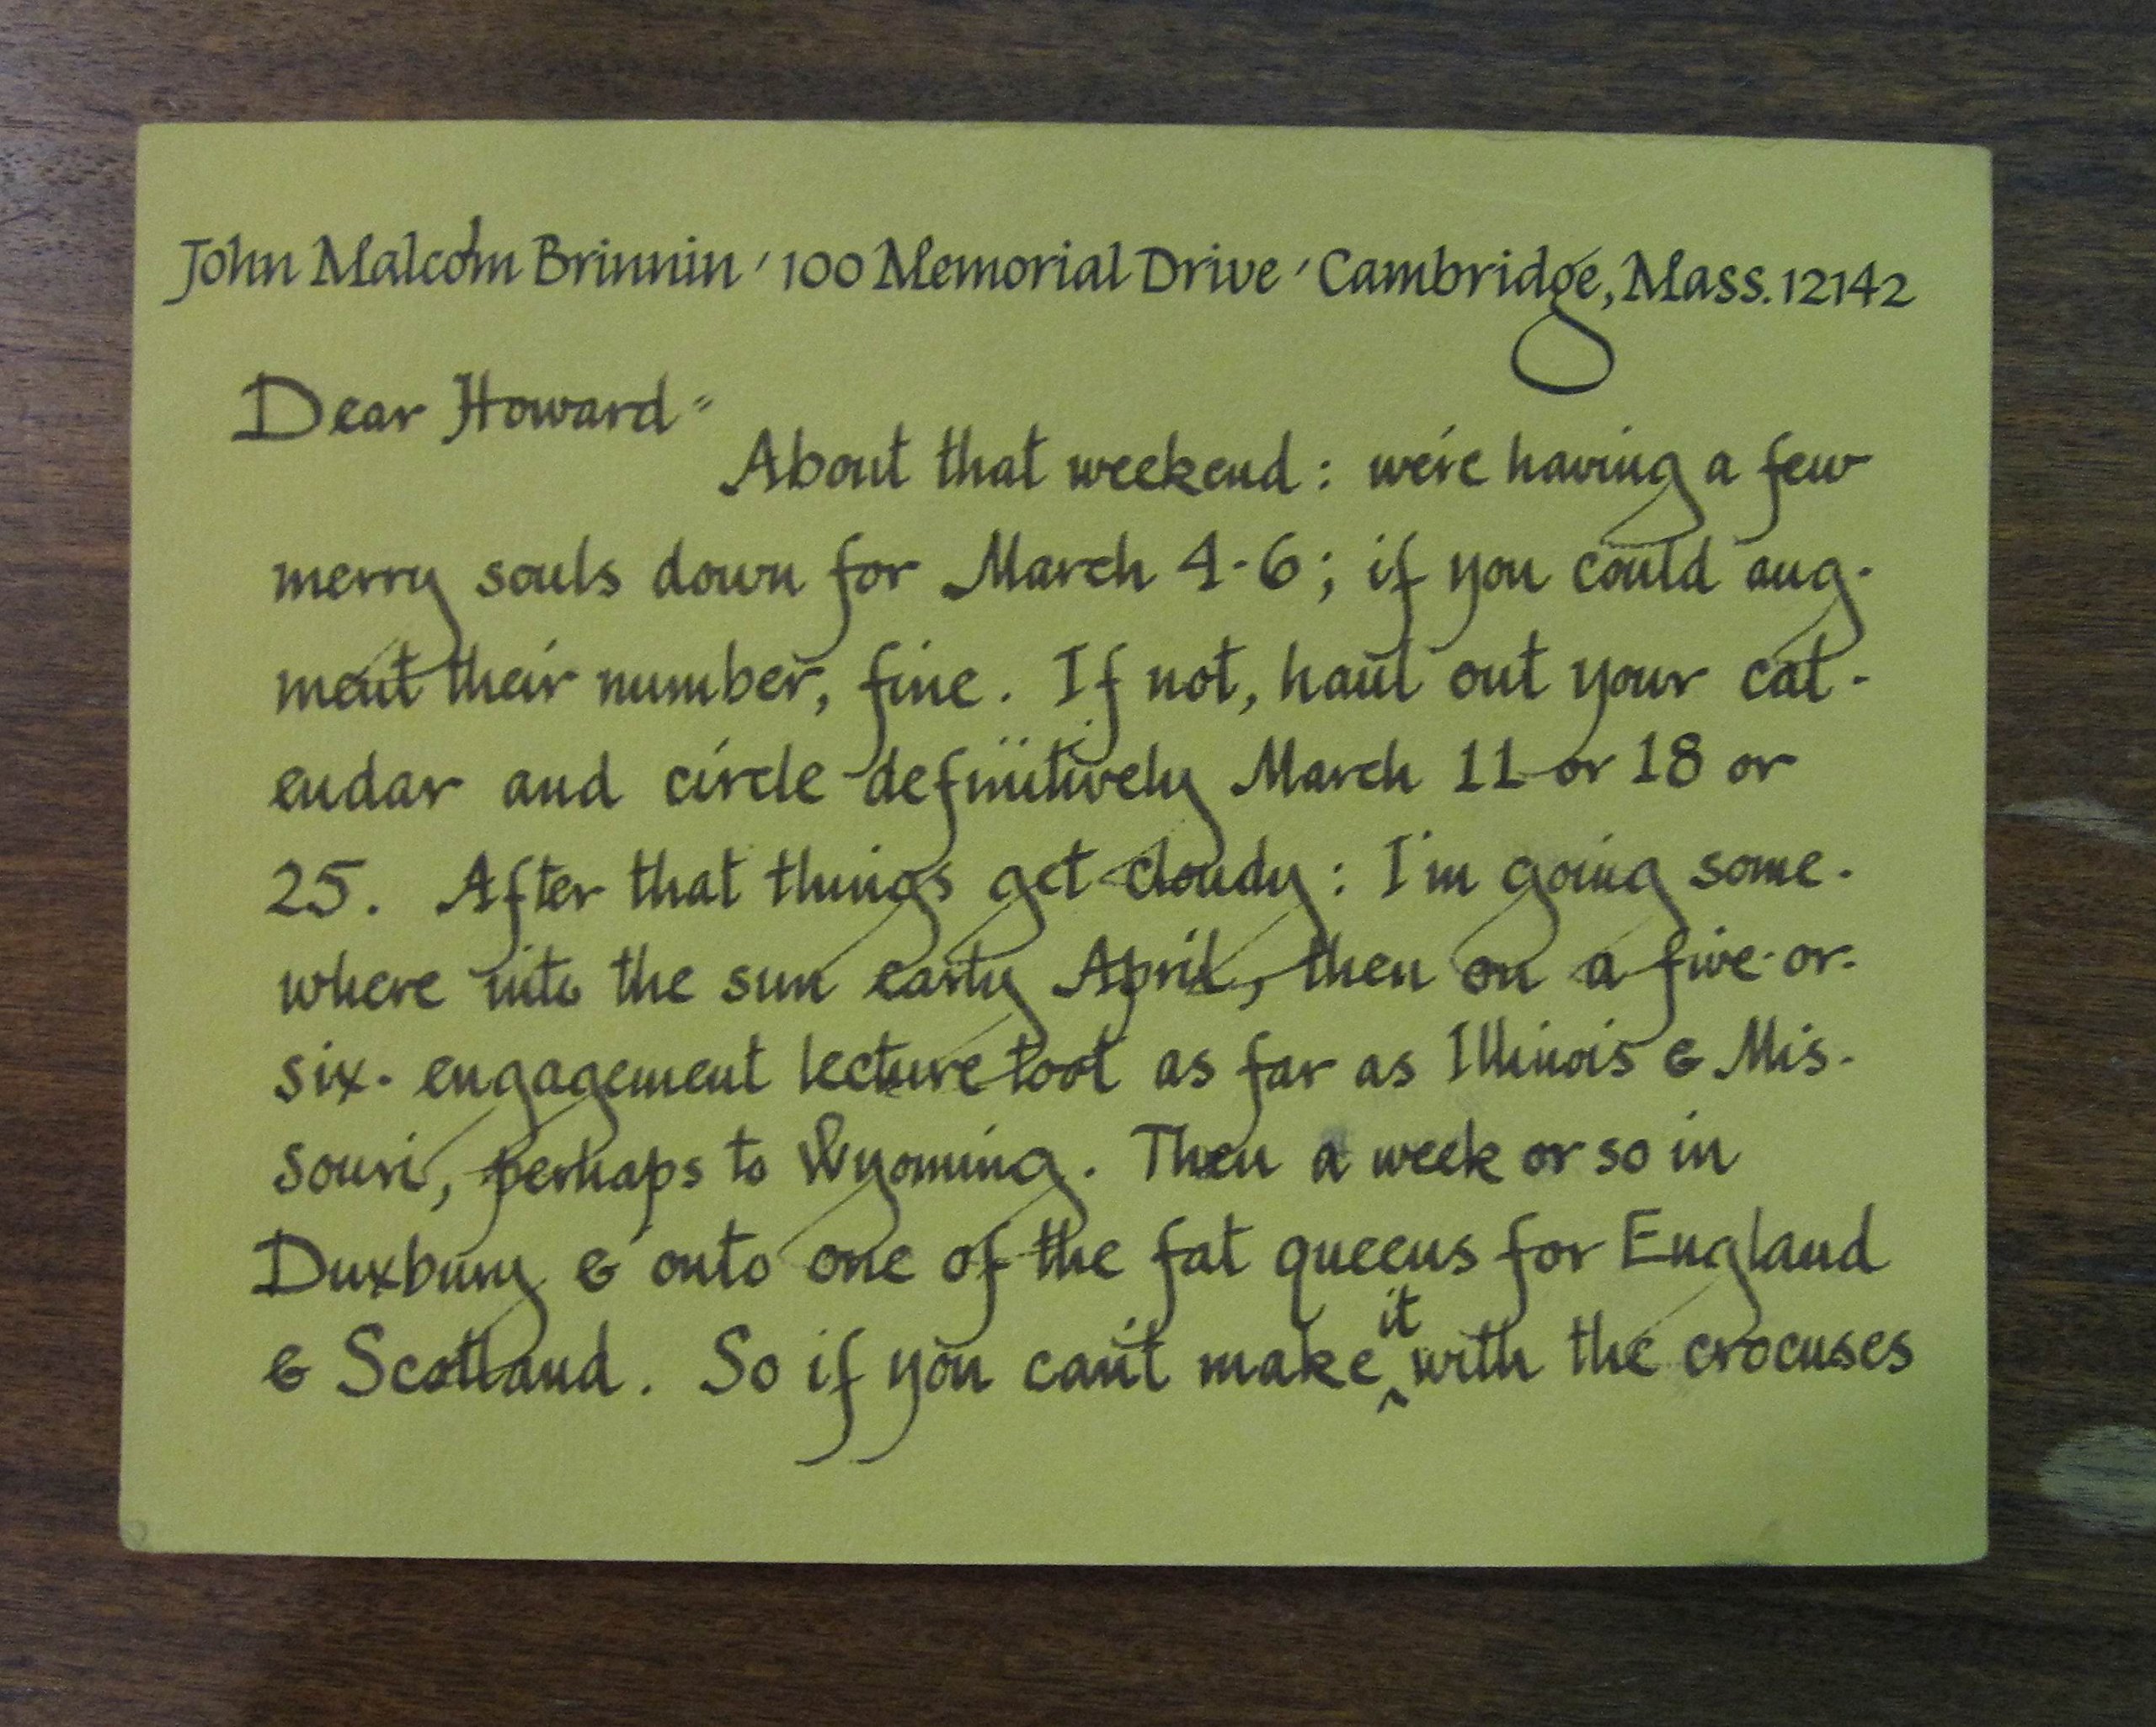 John Malcolm Brinnin / 100 Memorial Drive / Cambridge, Mass. 12142
Dear Howard -
About that weekend : we're having a few
merry souls down for March 4-6; if you could aug-
ment their number, fine. If not, haul out your cal-
endar and circle definitively March 11 or 18 or
25. After that things get cloudy : I'm going some-
where into the sun early April, then on a five-or-
six-engagement lecture toot as far as Illinois & Mis-
souri, perhaps to Wyoming. Then a week or so in
Duxbury & onto one of the fat queens for England
& Scotland. So if you can't make it with the crocuses